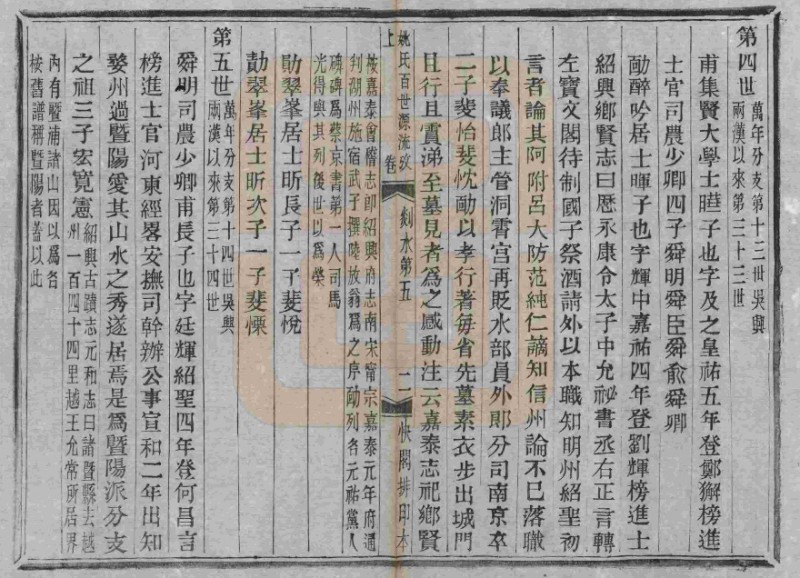 第四世萬年分支第十三世吳興
兩漢以來第三十三世
甫集賢大學士曎子也字及之皇祐五年登鄭獬榜進
士官司農少卿四子舜明舜臣舜俞舜卿
勔醉吟居士暉子也字輝中嘉祐四年登劉輝榜進士
紹興鄉賢志曰歷永康令太子中允祕書丞右正言轉
左寶文閣待制國子祭酒請外以本職知明州紹聖初
言者論其阿附呂大防范純仁謫知信州論不已落職
以奉議郎主管洞霄宮再貶水部員外郎分司南京卒
二子斐怡斐忱勔以孝行著每省先墓素衣步出城門
且行且霣涕至墓見者為之感動注云嘉泰志祀鄉賢
按嘉泰會稽志卽紹興府志南宋甯宗嘉泰元年府通
判湖州施宿武子撰陸放翁為之序勔列各元祐黨人
碑碑爲蔡京書第一人司馬
光得與其列後世以爲榮
勛翠峯居士昕長子一子斐悅
勣翠峯居士昕次子一子斐慄
第五世萬年分支第十四世吳興
兩漢以來第三十四世
舜明司農少卿甫長子也字廷輝紹聖四年登何昌言
榜進士官河東經畧安撫司幹辦公事宣和二年出知
婺州過暨陽愛其山水之秀遂居焉是爲暨陽派分支
之祖三子宏寬憲紹興古蹟志元和志曰諸暨縣去越
州一百四十四里越王允常所居界
內有暨浦諸山因以爲名
按舊譜稱暨陽者蓋以此
姚氏百世源流攷
上
卷
剡水第五
二
快閣排印本